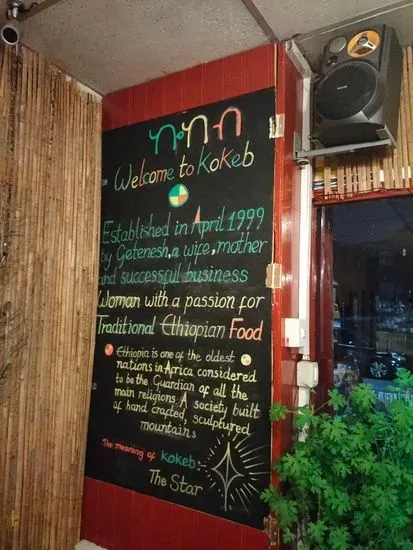 ኮከብ
Welcome to Kokeb
Established in April 1999
by Getenesh, a wife, mother
and successful business
Woman with a passion for
Traditional Ethiopian Food
Ethiopia is one of the oldest
nations in Africa considered
to be the Guardian of all the
main religions. A society built
of hand crafted, sculptured
mountains
The meaning of Kokeb:
The Star